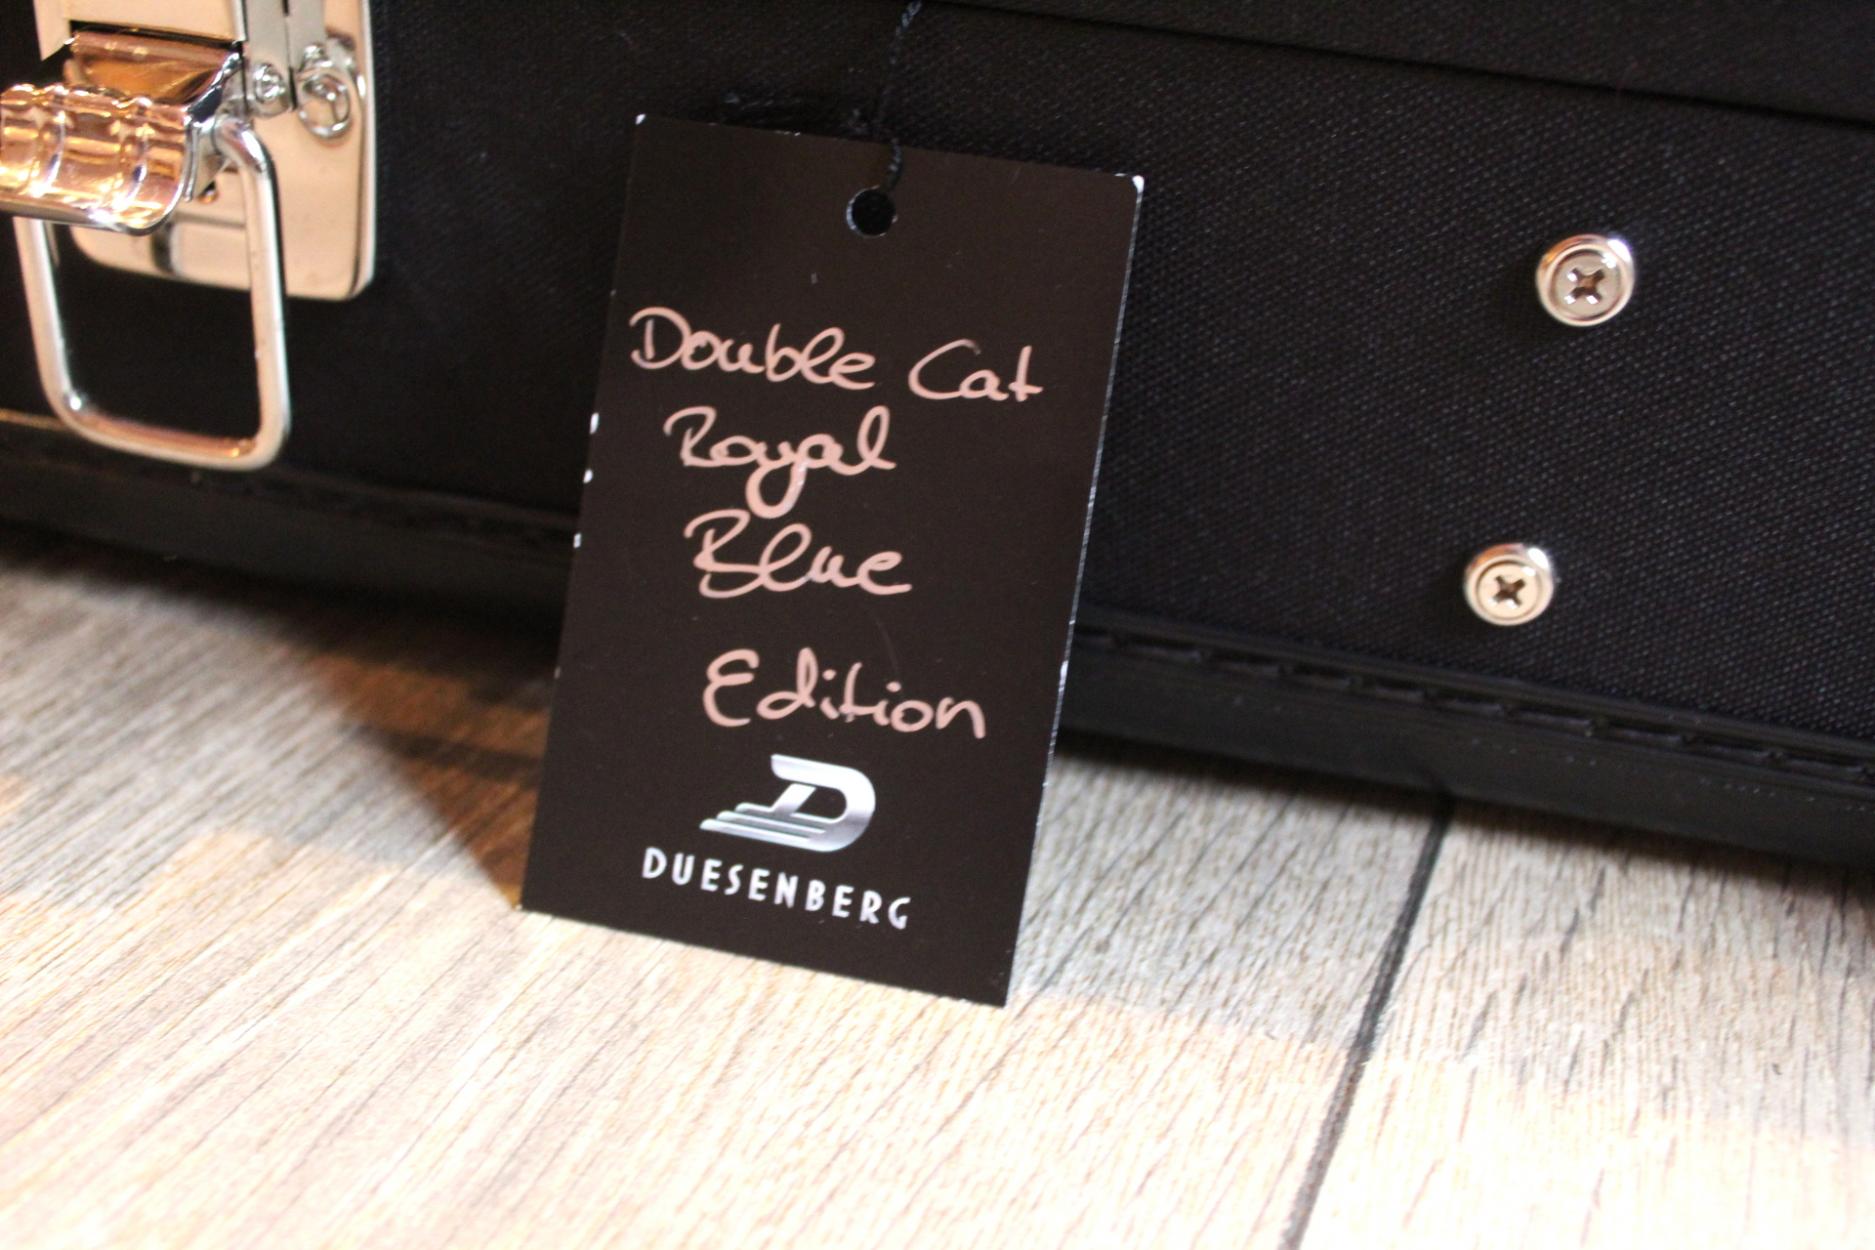 Double Cat
Royal
Blue
Edition
DUESENBERG